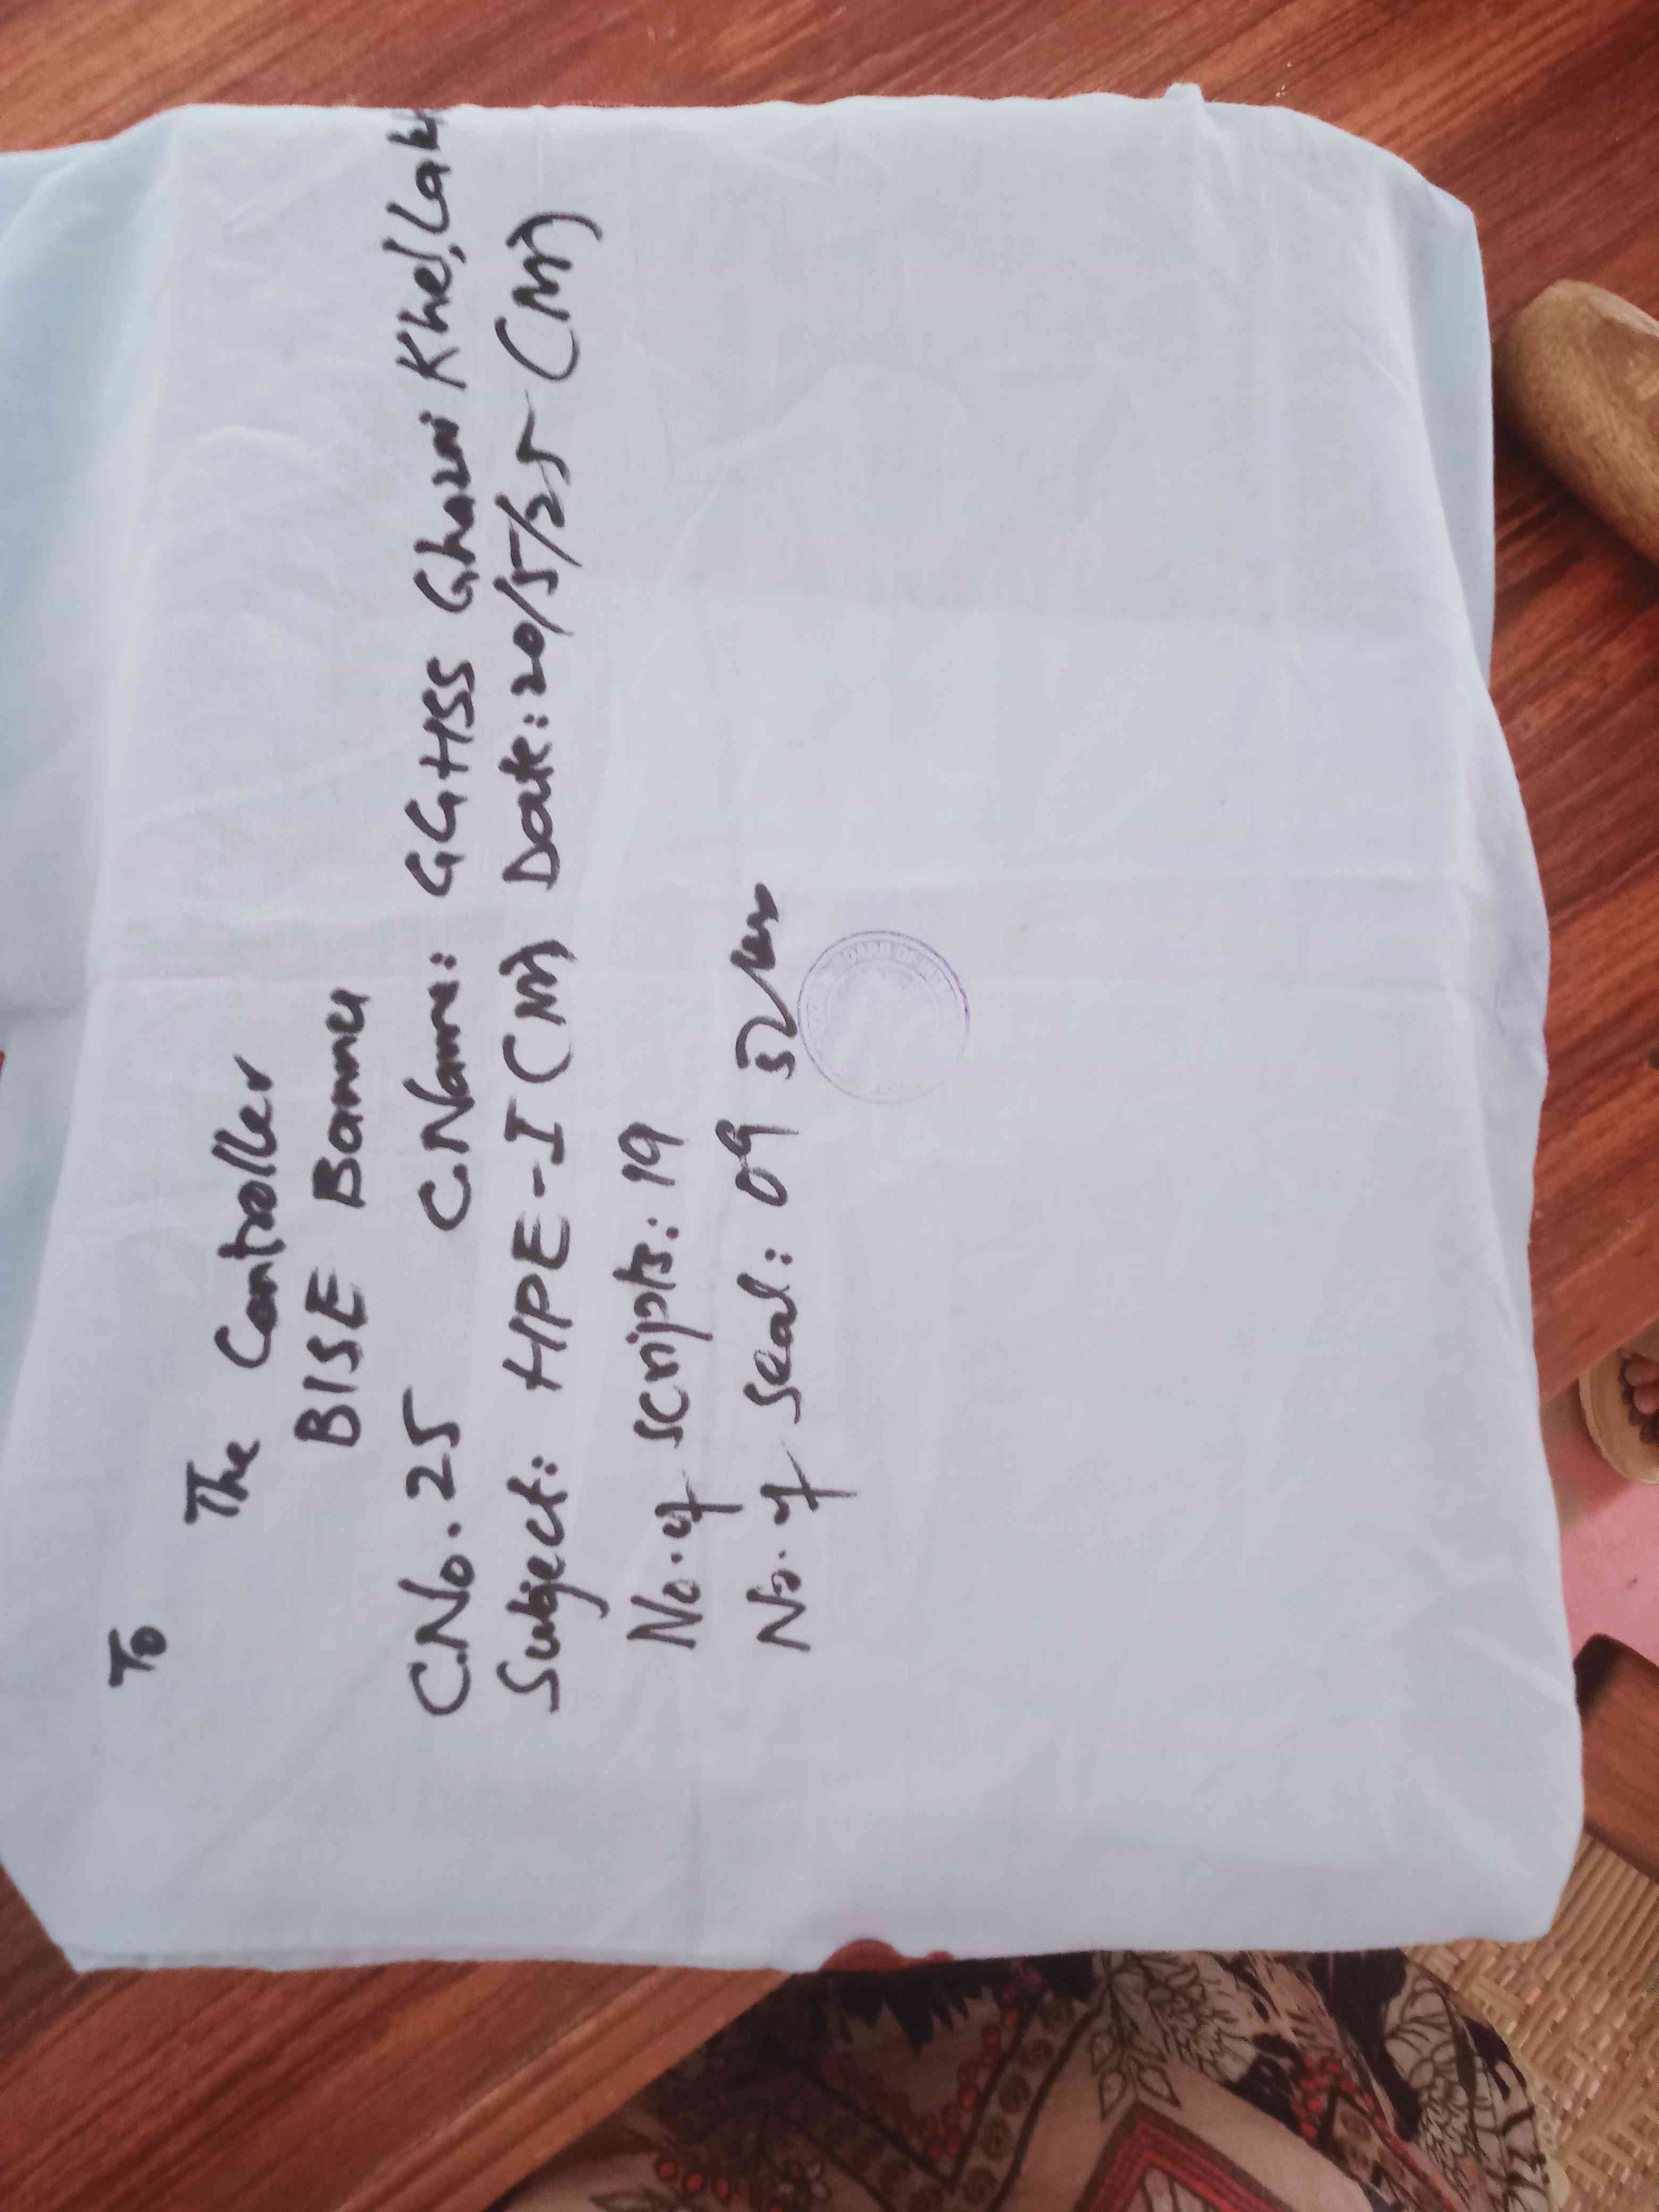 To
The Controller
BISE Bannu
C.No. 25 C.Name: GGHSS Ghazni Khel, Lak
Subject: HPE-I (M) Date: 20/5/25 (M)
No. of scripts: 19
No. of Seal: 09
BOARD OF